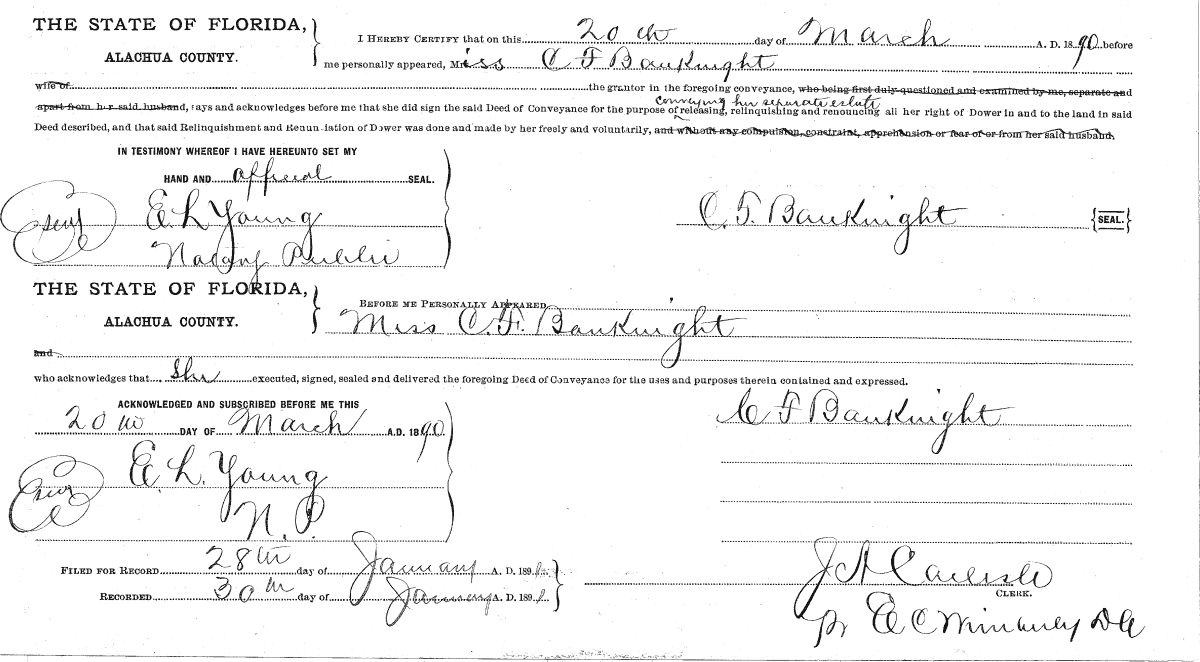 THE STATE OF FLORIDA,
ALACHUA COUNTY.
I HEREBY CERTIFY that on this 20th day of March A. D. 1890 before
me personally appeared, Miss C F Bauknight
wife of the grantor in the foregoing conveyance, who being first duly questioned and examined by me, separate and
conveying her separate estate
apart from her said husband, says and acknowledges before me that she did sign the said Deed of Conveyance for the purpose of releasing, relinquishing and renouncing all her right of Dower in and to the land in said
Deed described, and that said Relinquishment and Renunciation of Dower was done and made by her freely and voluntarily, and without any compulsion, constraint, apprehension or fear of or from her said husband.
IN TESTIMONY WHEREOF I HAVE HEREUNTO SET MY
HAND AND official SEAL.
Seal E. L Young C. F. Bauknight {SEAL.}
Notary Public
THE STATE OF FLORIDA,
ALACHUA COUNTY.
BEFORE ME PERSONALLY APPEARED
Miss C. F. Bauknight
and
who acknowledges that she executed, signed, sealed and delivered the foregoing Deed of Conveyance for the uses and purposes therein contained and expressed.
ACKNOWLEDGED AND SUBSCRIBED BEFORE ME THIS
20th DAY OF March A.D. 1890.
C F Bauknight
Seal E. L. Young
N. P.
FILED FOR RECORD 28th day of January A. D. 1891
RECORDED 30th day of January A. D. 1891
J A Carlisle
CLERK.
E C DC